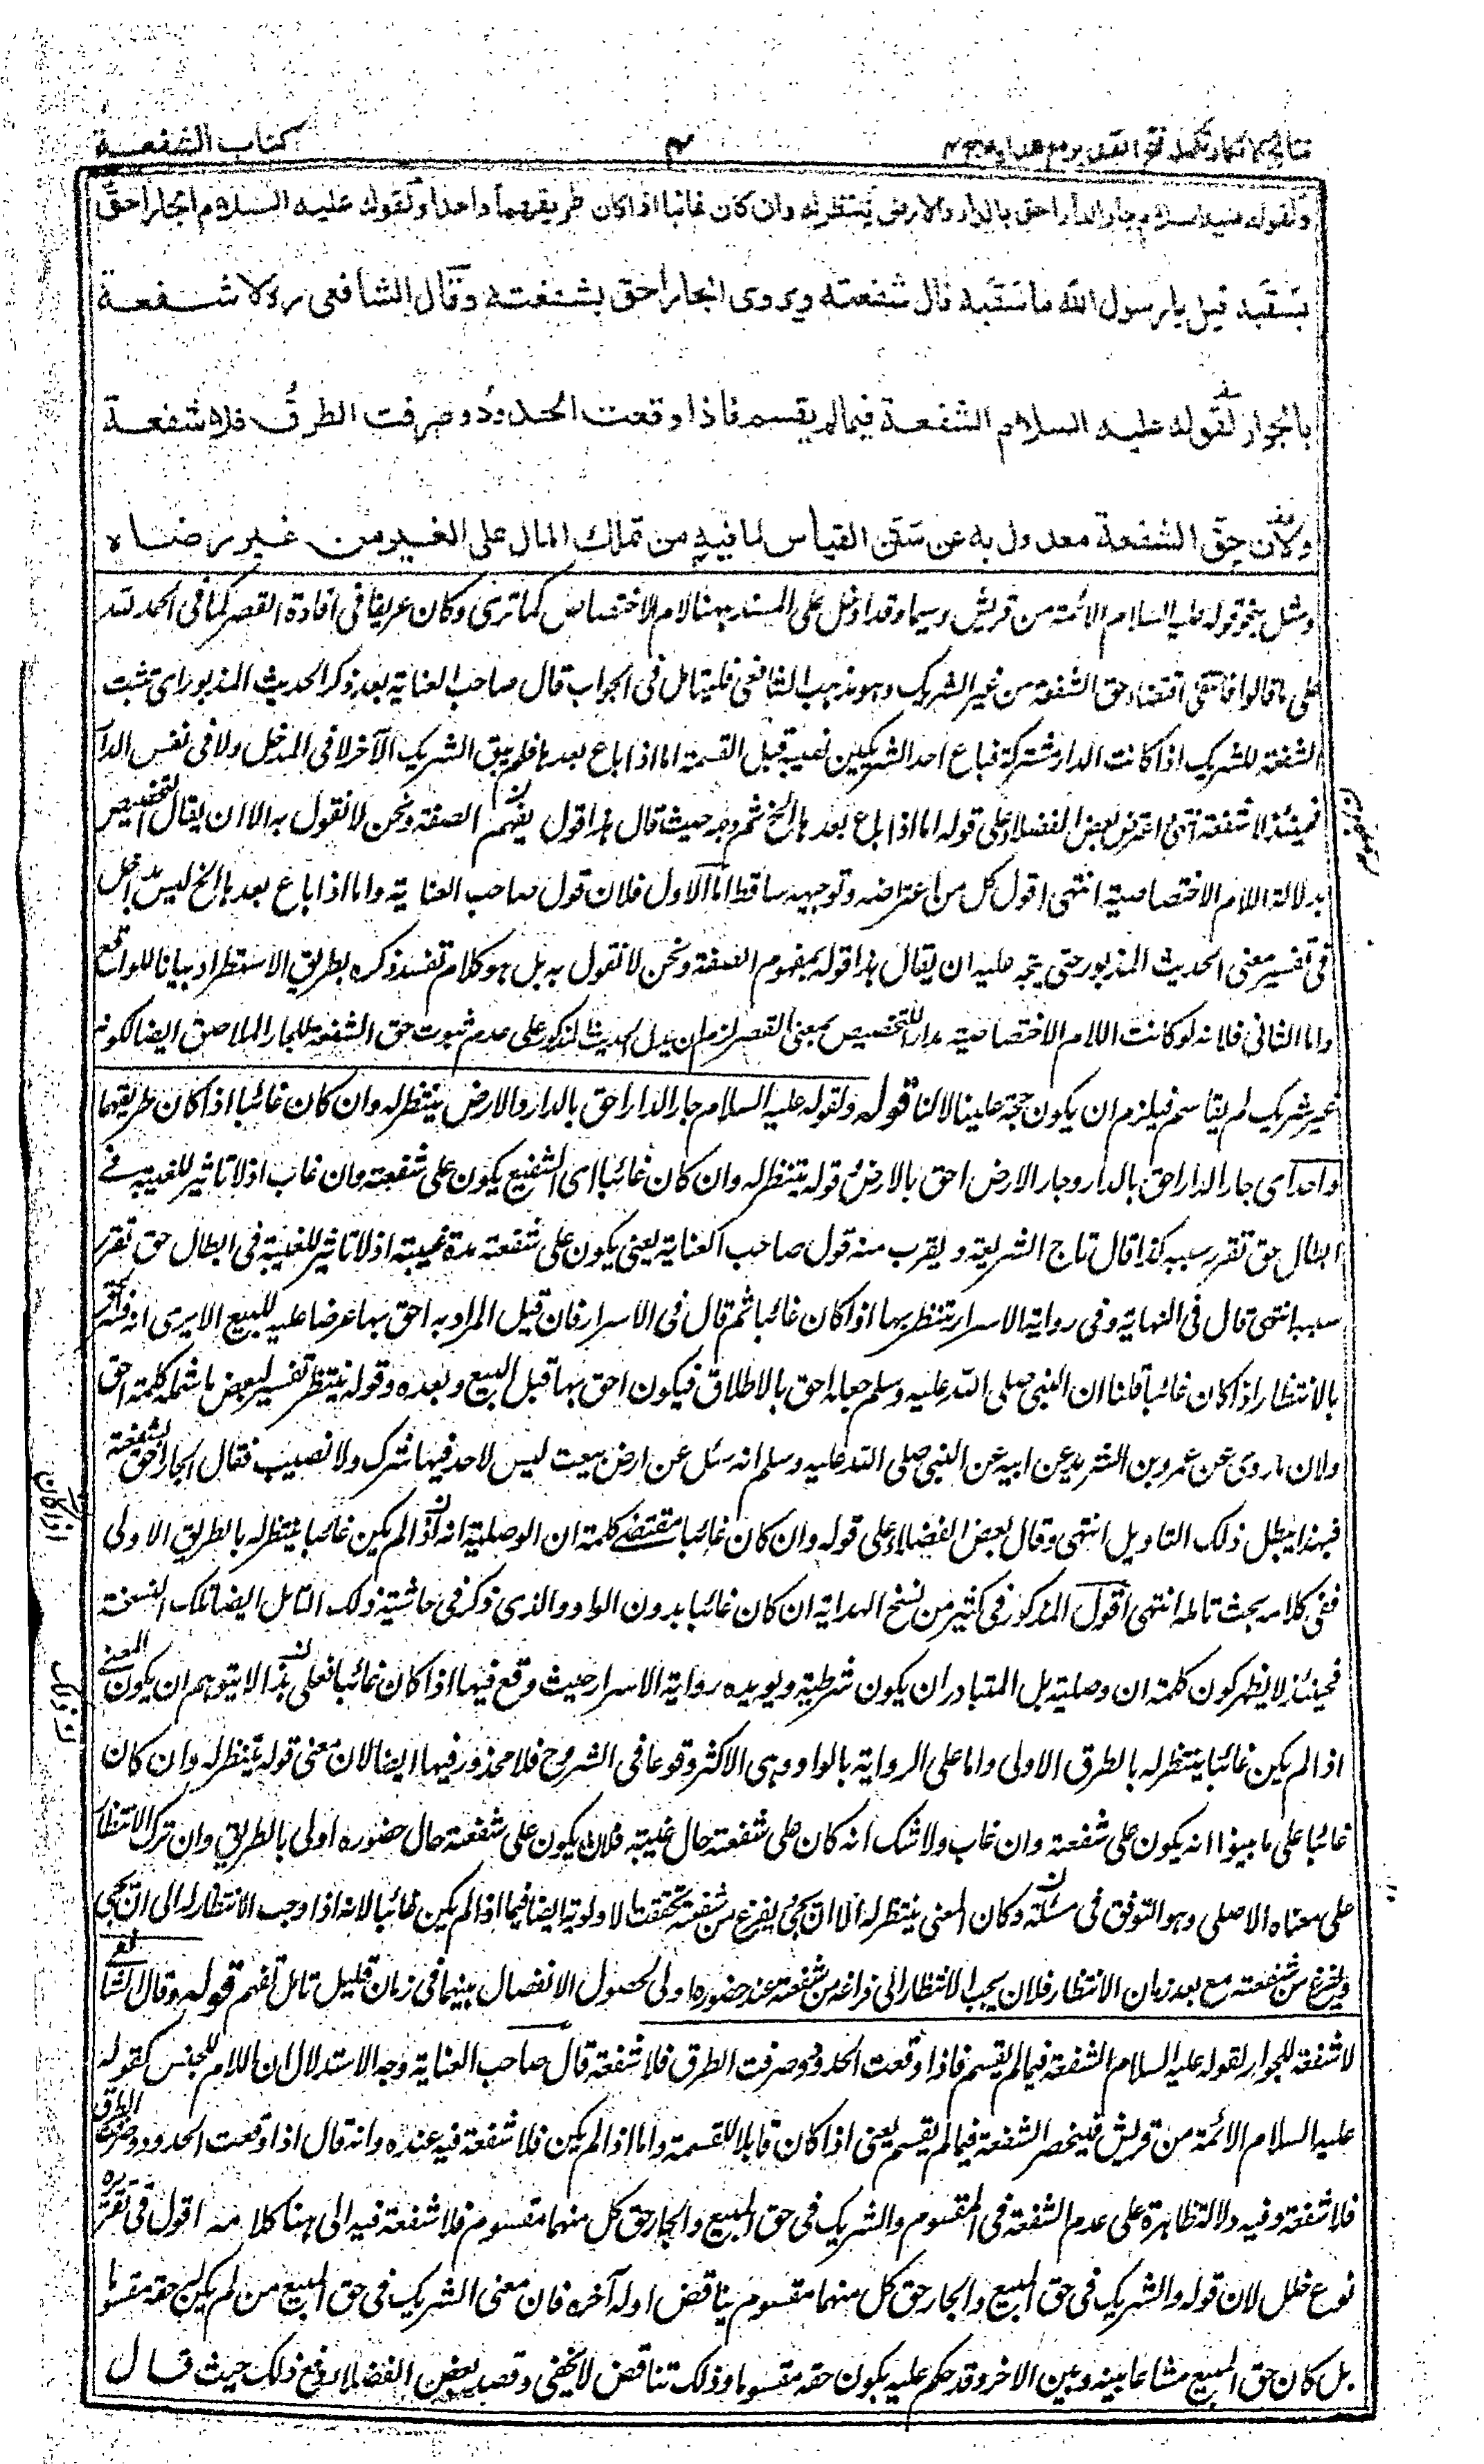 نتائج الافكار تكملة فتح القدير مع هدايه ج ٤
٤
كتاب الشفعة
ولقوله عليه السلام جار الدار احق بالدار والارض ينتظر له وان كان غائبا اذا كان طريقهما واحدا ولقوله عليه السلام الجار احق
بسقبه قيل يا رسول الله ما سقبه قال شفعته ويروى الجار احق بشفعته وقال الشافعي رہ لا شفعة
بالجوار لقوله عليه السلام الشفعة فيما لم يقسم فاذا وقعت الحدود وصرفت الطرق فلا شفعة
ولان حق الشفعة معدول به عن سنن القياس لما فيه من تملك المال على الغير من غير رضاه
ومثل نحو قوله عليه السلام الائمة من قريش وسيما وقد ادخل على المسند ههنا لام الاختصاص كما ترى وكان عريقا في افادة القصر كما في الحمد لله
على ما قالوا فاقتضى انتفاء حق الشفعة من غير الشريك وهو مذهب الشافعي فليتامل في الجواب قال صاحب العناية بعد ذكر الحديث المذبور اى تثبت
الشفعة للشريك اذا كانت الدار مشتركة فباع احد الشريكين نصيبه قبل القسمة اما اذا باع بعدها فلم يبق الشريك الآخر لا في المدخل ولا في نفس الدار
فحينئذ لا شفعة انتهى اعترض بعض الفضلاء على قوله اما اذا باع بعدها الخ ثم وجه حيث قال هذا قول بمفهوم الصفة ونحن لا نقول به الا ان يقال التخصيص
بدلالة اللام الاختصاصية انتهى اقول كل من اعتراضه وتوجيهه ساقط اما الاول فلان قول صاحب العناية واما اذا باع بعدها الخ ليس بداخل
في تفسير معنى الحديث المذبور حتى يتجه عليه ان يقال هذا قوله بمفهوم الصفة ونحن لا نقول به بل هو كلام نفسه ذكره بطريق الاستطراد بيانا للواقع
واما الثاني فلانه لو كانت اللام الاختصاصية مدار للتخصيص بمعنى القصر لزم ان يدل الحديث المذكور على عدم ثبوت حق الشفعة للجار الملاصق ايضا لكونه
غير شريك لم يقاسم فيلزم ان يكون حجة علينا لا لنا قوله ولقوله عليه السلام جار الدار احق بالدار والارض ينتظر له وان كان غائبا اذا كان طريقهما
واحدا اى جار الدار احق بالدار وجار الارض احق بالارض قوله ينتظر له وان كان غائبا اى الشفيع يكون على شفعته وان غاب اذ لا تاثير للغيبة في
ابطال حق تقرر سببه كذا قال تاج الشريعة ويقرب منه قول صاحب العناية يعنى يكون على شفعته مدة غيبته اذ لا تاثير للغيبة في ابطال حق تقرر
سببه انتهى قال في النهاية وفى رواية الاسرار ينتظر بها اذا كان غائبا ثم قال في الاسرار فان قيل المراد به احق بها عرضا عليه للبيع الا يرى انه فسر الحق
بالانتظار اذا كان غائبا قلنا ان النبي صلى الله عليه وسلم جعله احق بالاطلاق فيكون احق بها قبل البيع وبعده وقوله ينتظر تفسير لبعض ما شمله كلمة احق
ولان ما روى عن عمرو بن الشريد عن ابيه عن النبي صلى الله عليه وسلم انه سئل عن ارض بيعت ليس لاحد فيها شرك ولا نصيب فقال الجار احق بشفعته
فبهذا يبطل ذلك التاويل انتهى وقال بعض الفضلاء على قوله وان كان غائبا مقتضى كلمة ان الوصلية انه اذا لم يكن غائبا ينتظر له بالطريق الاولى
ففى كلامه بحث تامله انتهى اقول المذكور في كثير من نسخ الهداية ان كان غائبا بدون الواو والذى ذكر في حاشيته ذلك القائل ايضا تلك النسخة
فحينئذ لا يظهر كون كلمة ان وصلية بل المتبادر ان يكون شرطية ويويده رواية الاسرار حيث وقع فيها اذا كان غائبا فعلى هذا لا يتوهم ان يكون المعنى
اذا لم يكن غائبا ينتظر له بالطرق الاولى واما على الرواية بالواو وهى الاكثر وقوعا في الشروح فلا محذور فيها ايضا لان معنى قوله ينتظر له وان كان
غائبا على ما بينوا انه يكون على شفعته وان غاب ولا شك انه كان على شفعته حال غيبته فلان يكون على شفعته حال حضوره اولى بالطريق وان ترك الانتظار
على معناه الاصلى وهو التوقف في مسئلة وكان المعنى ينتظر له الى ان يجئ ويفرغ من شفعته تحققت الاولوية ايضا فيما اذا لم يكن غائبا لانه اذا وجب الانتظار له الى ان يجئ
ويفرغ من شفعته مع بعد زمان الانتظار فلان يجب الانتظار الى فراغه من شفعته عند حضوره اولى لحصول الانفصال بينهما في زمان قليل تامل تفهم قوله وقال الشافعى
لا شفعة للجوار لقوله عليه السلام الشفعة فيما لم يقسم فاذا وقعت الحدود وصرفت الطرق فلا شفعة قال صاحب العناية وجه الاستدلال ان اللام للجنس كقوله
عليه السلام الائمة من قريش فينحصر الشفعة فيما لم يقسم يعنى اذا كان قابلا للقسمة واما اذا لم يكن فلا شفعة فيه عنده وانه قال اذا وقعت الحدود وصرفت الطرق
فلا شفعة وفيه دلالة ظاهرة على عدم الشفعة في المقسوم والشريك في حق المبيع والجار حق كل منهما مقسوم فلا شفعة فيه الى هنا كلامه اقول في تقريره
نوع خلل لان قوله والشريك في حق المبيع والجار حق كل منهما مقسوم يناقض اوله آخره فان معنى الشريك في حق المبيع من لم يكن حقه مقسوما
بل كان حق المبيع مشاعا بينه وبين الاخر وقد حكم عليه بكون حقه مقسوما وذلك تناقض لا يخفى وقصد بعض الفضلاء دفع ذلك حيث قال